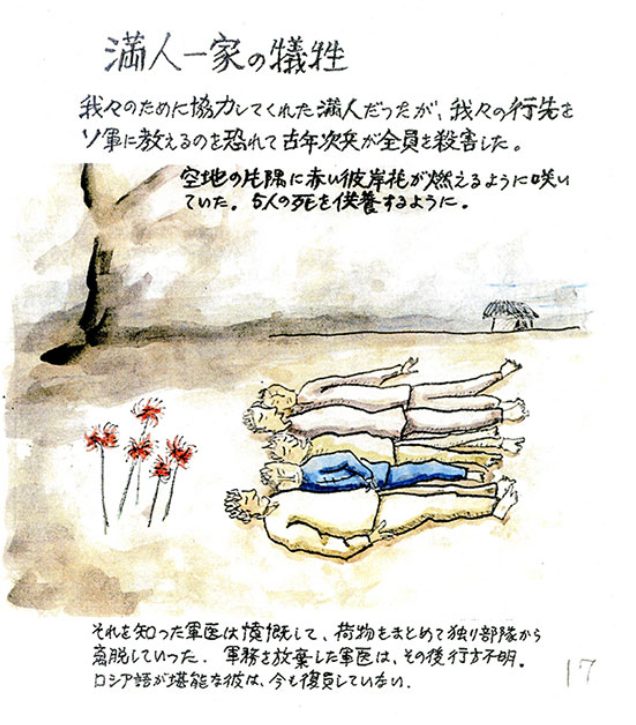 満人一家の犠牲
我々のために協力してくれた満人だったが、我々の行先を
ソ軍に教えるのを恐れて古年次兵が全員を殺害した。
空地の片隅に赤い彼岸花が燃えるように咲い
ていた。5人の死を供養するように。
それを知った軍医は憤慨して、荷物をまとめて独り部隊から
離脱していった. 軍務を放棄した軍医は、その後行方不明.
ロシア語が堪能な彼は、今も復員していない.
17